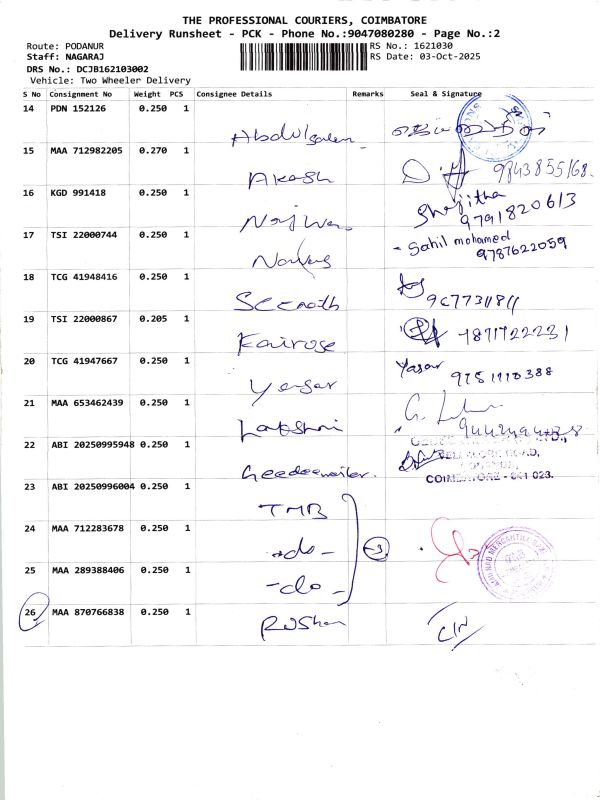 THE PROFESSIONAL COURIERS, COIMBATORE
Delivery Runsheet - PCK - Phone No.:9047080280 - Page No.:2
Route: PODANUR RS No.: 1621030
Staff: NAGARAJ RS Date: 03-Oct-2025
DRS No.: DCJB162103002
Vehicle: Two Wheeler Delivery
S No Consignment No Weight PCS Consignee Details Remarks Seal & Signature
14 PDN 152126 0.250 1
15 MAA 712982205 0.270 1 Akash
16 KGD 991418 0.250 1 Shajitha 9791820613
17 TSI 22000744 0.250 1 - Sahil mohamed 9787622059
18 TCG 41948416 0.250 1
19 TSI 22000867 0.205 1 Fairose
20 TCG 41947667 0.250 1 Yasar
21 MAA 653462439 0.250 1 Lakshmi
22 ABI 20250995948 0.250 1 COIMBATORE - 641 023.
23 ABI 20250996004 0.250 1 TMB
24 MAA 712283678 0.250 1 -do- 3
25 MAA 289388406 0.250 1 -do-
26 MAA 870766838 0.250 1 Roshan